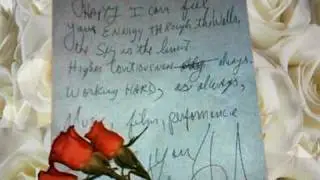 I can feel
your ENERGY THROUGH the Walls,
the Sky is the limit
Higher always.
WORKING HARD, as always,
Music, film, performance
You